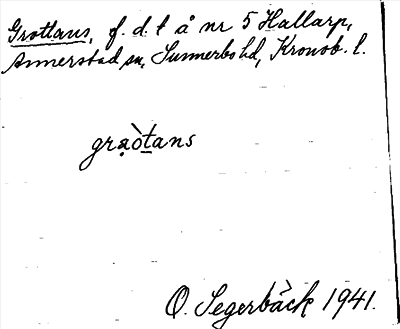 Grottans, f. d. t å nr 5 Hallarp,
Annerstad sn, Sunnerbo hd, Kronob. l.
grạòt̲ans
O. Segerbäck 1941.